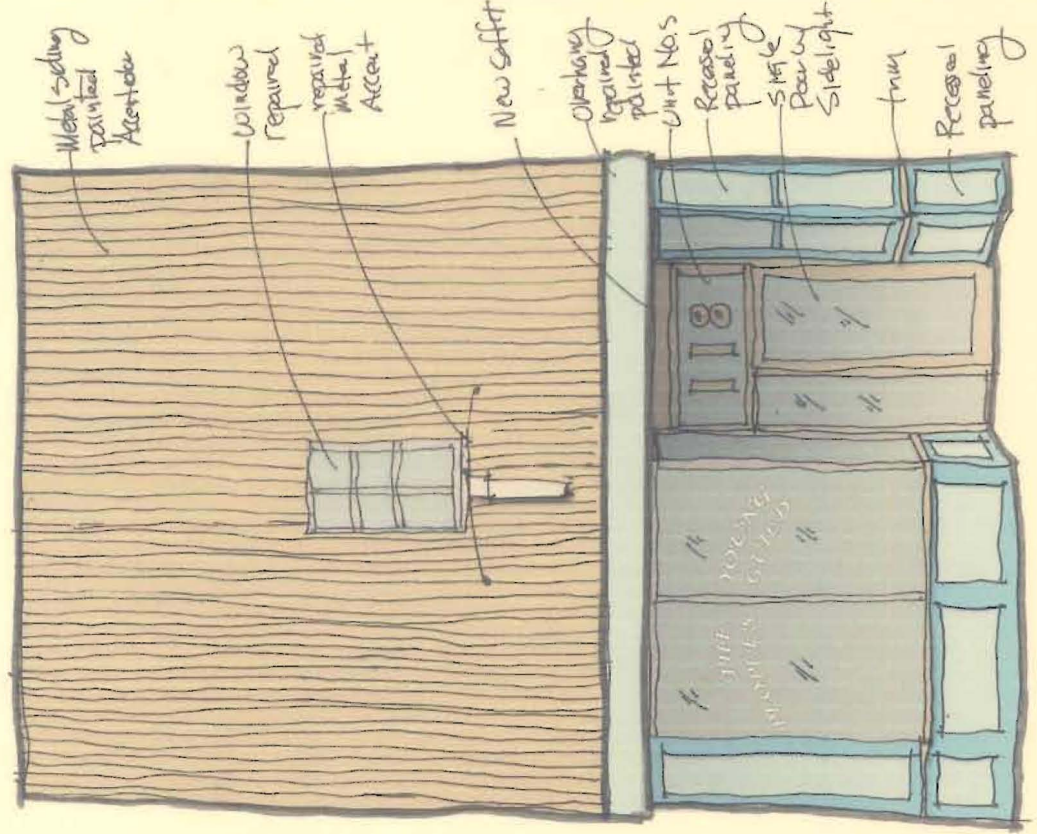 Metal siding
painted
Window
repaired
repaired
Metal
Accent
New Soffit
Overhang
repaired
painted
Unit NO.S
Recessed
paneling
Single
Door w/
Sidelight
trim
Recessed
paneling
118
THE YOUNG